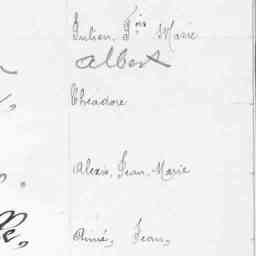 Julien, Fois Marie
Albert
Théodore
Alexis, Jean, Marie
Aimé, Jean,